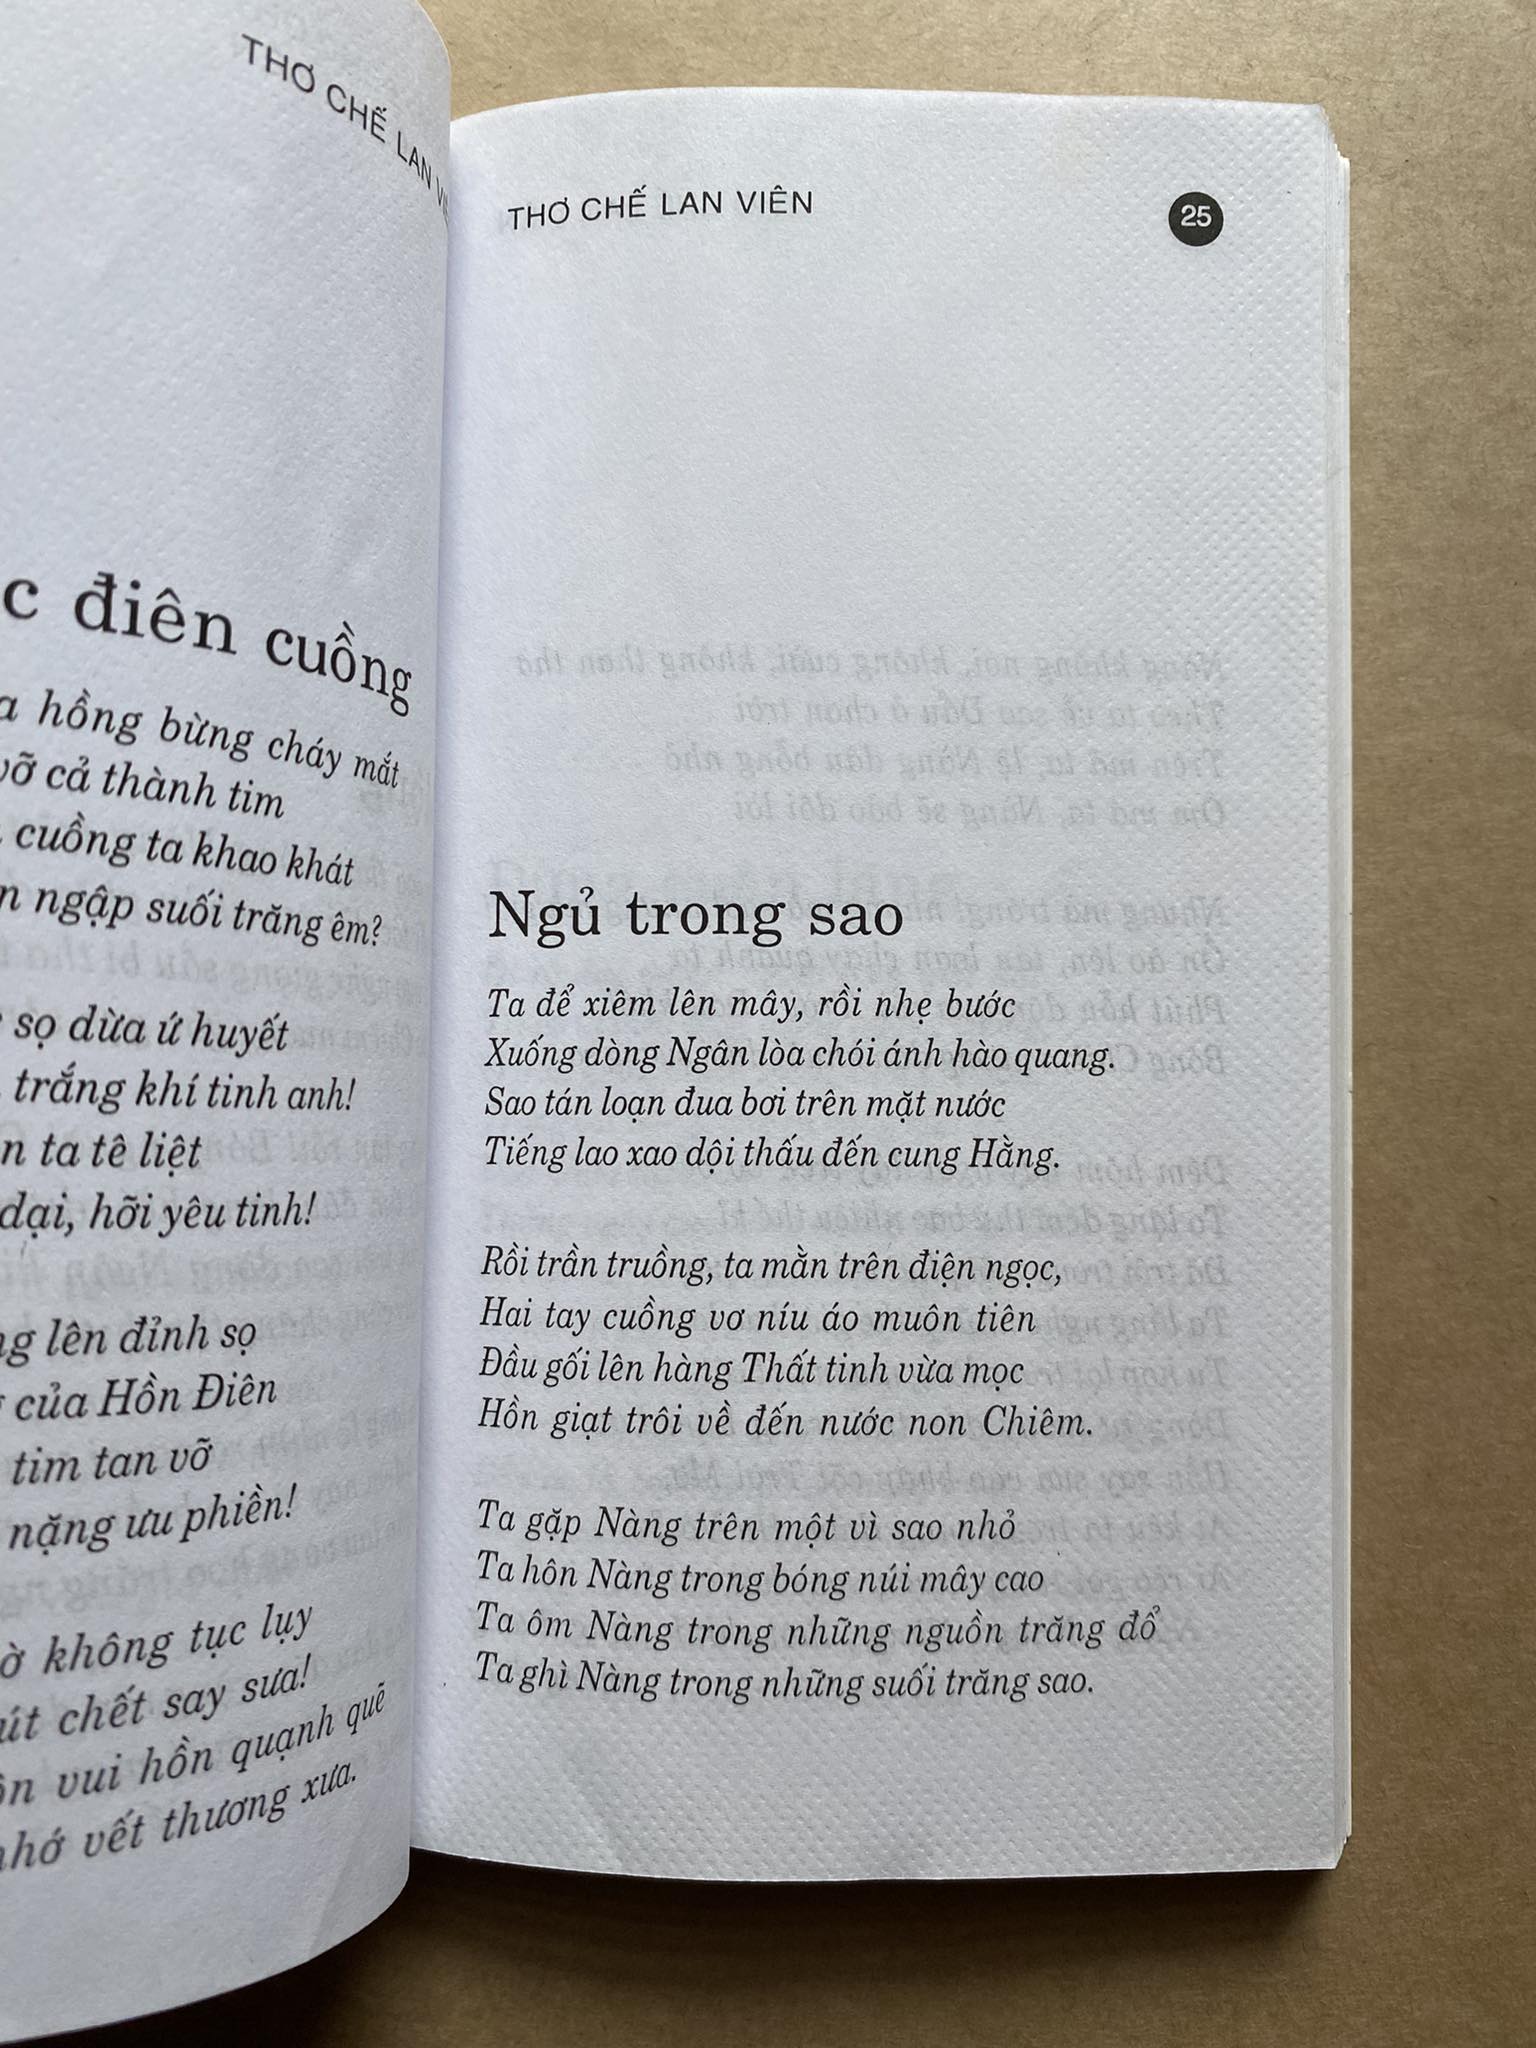 THƠ CHẾ LAN
điên cuồng
hồng bừng cháy mắt
vỡ cả thành tim
cuồng ta khao khát
ngập suối trăng êm?
sọ dừa ứ huyết
trắng khí tinh anh!
ta tê liệt
dại, hỡi yêu tinh!
lên đỉnh sọ
của Hồn Điên
tim tan vỡ
nặng ưu phiền!
không tục lụy
chết say sưa!
vui hồn quạnh quẽ
nhớ vết thương xưa.
THƠ CHẾ LAN VIÊN
25
Ngủ trong sao
Ta để xiêm lên mây, rồi nhẹ bước
Xuống dòng Ngân lòa chói ánh hào quang.
Sao tán loạn đua bơi trên mặt nước
Tiếng lao xao dội thấu đến cung Hằng.
Rồi trần truồng, ta mằn trên điện ngọc,
Hai tay cuồng vơ níu áo muôn tiên
Đầu gối lên hàng Thất tinh vừa mọc
Hồn giạt trôi về đến nước non Chiêm.
Ta gặp Nàng trên một vì sao nhỏ
Ta hôn Nàng trong bóng núi mây cao
Ta ôm Nàng trong những nguồn trăng đổ
Ta ghì Nàng trong những suối trăng sao.